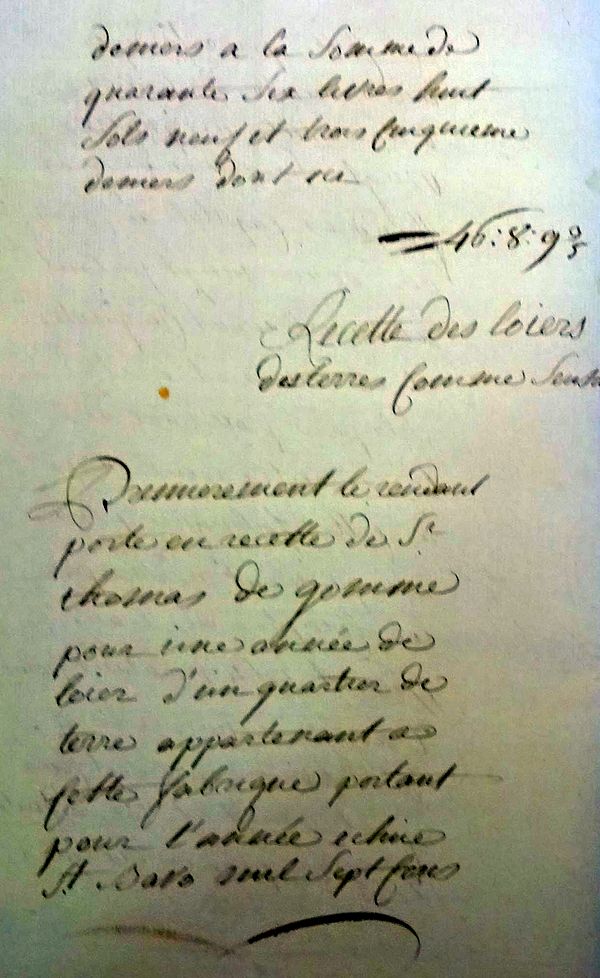 deniers a la Somme de
quarante Six livres huit
Sols neuf et trois Cinquieme
deniers dont icy
46: 8: 9 3/5
Recette des loiers
des terres Comme Sensuit
Premierement le rendant
porte en recette de Sr
thomas de gomme
pour une année de
loier d'un quartier de
terre appartenant a
Cette fabrique portant
pour l'année echue
St Bavo mil Sept Cens